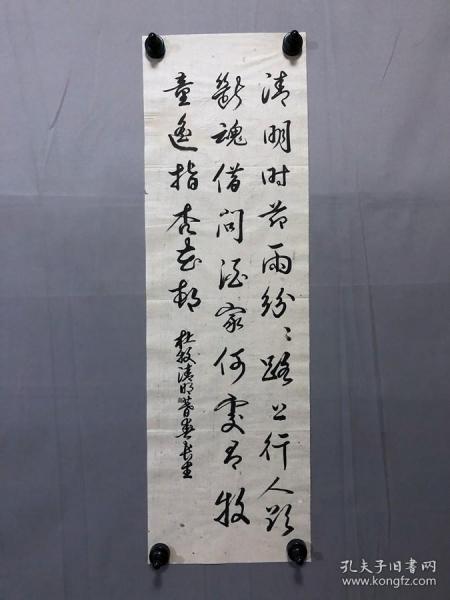 清明时节雨纷〻路上行人欲
斷魂借问酒家何處有牧
童遥指杏花村
杜牧清明
孔夫子旧书网
www.kongfz.com